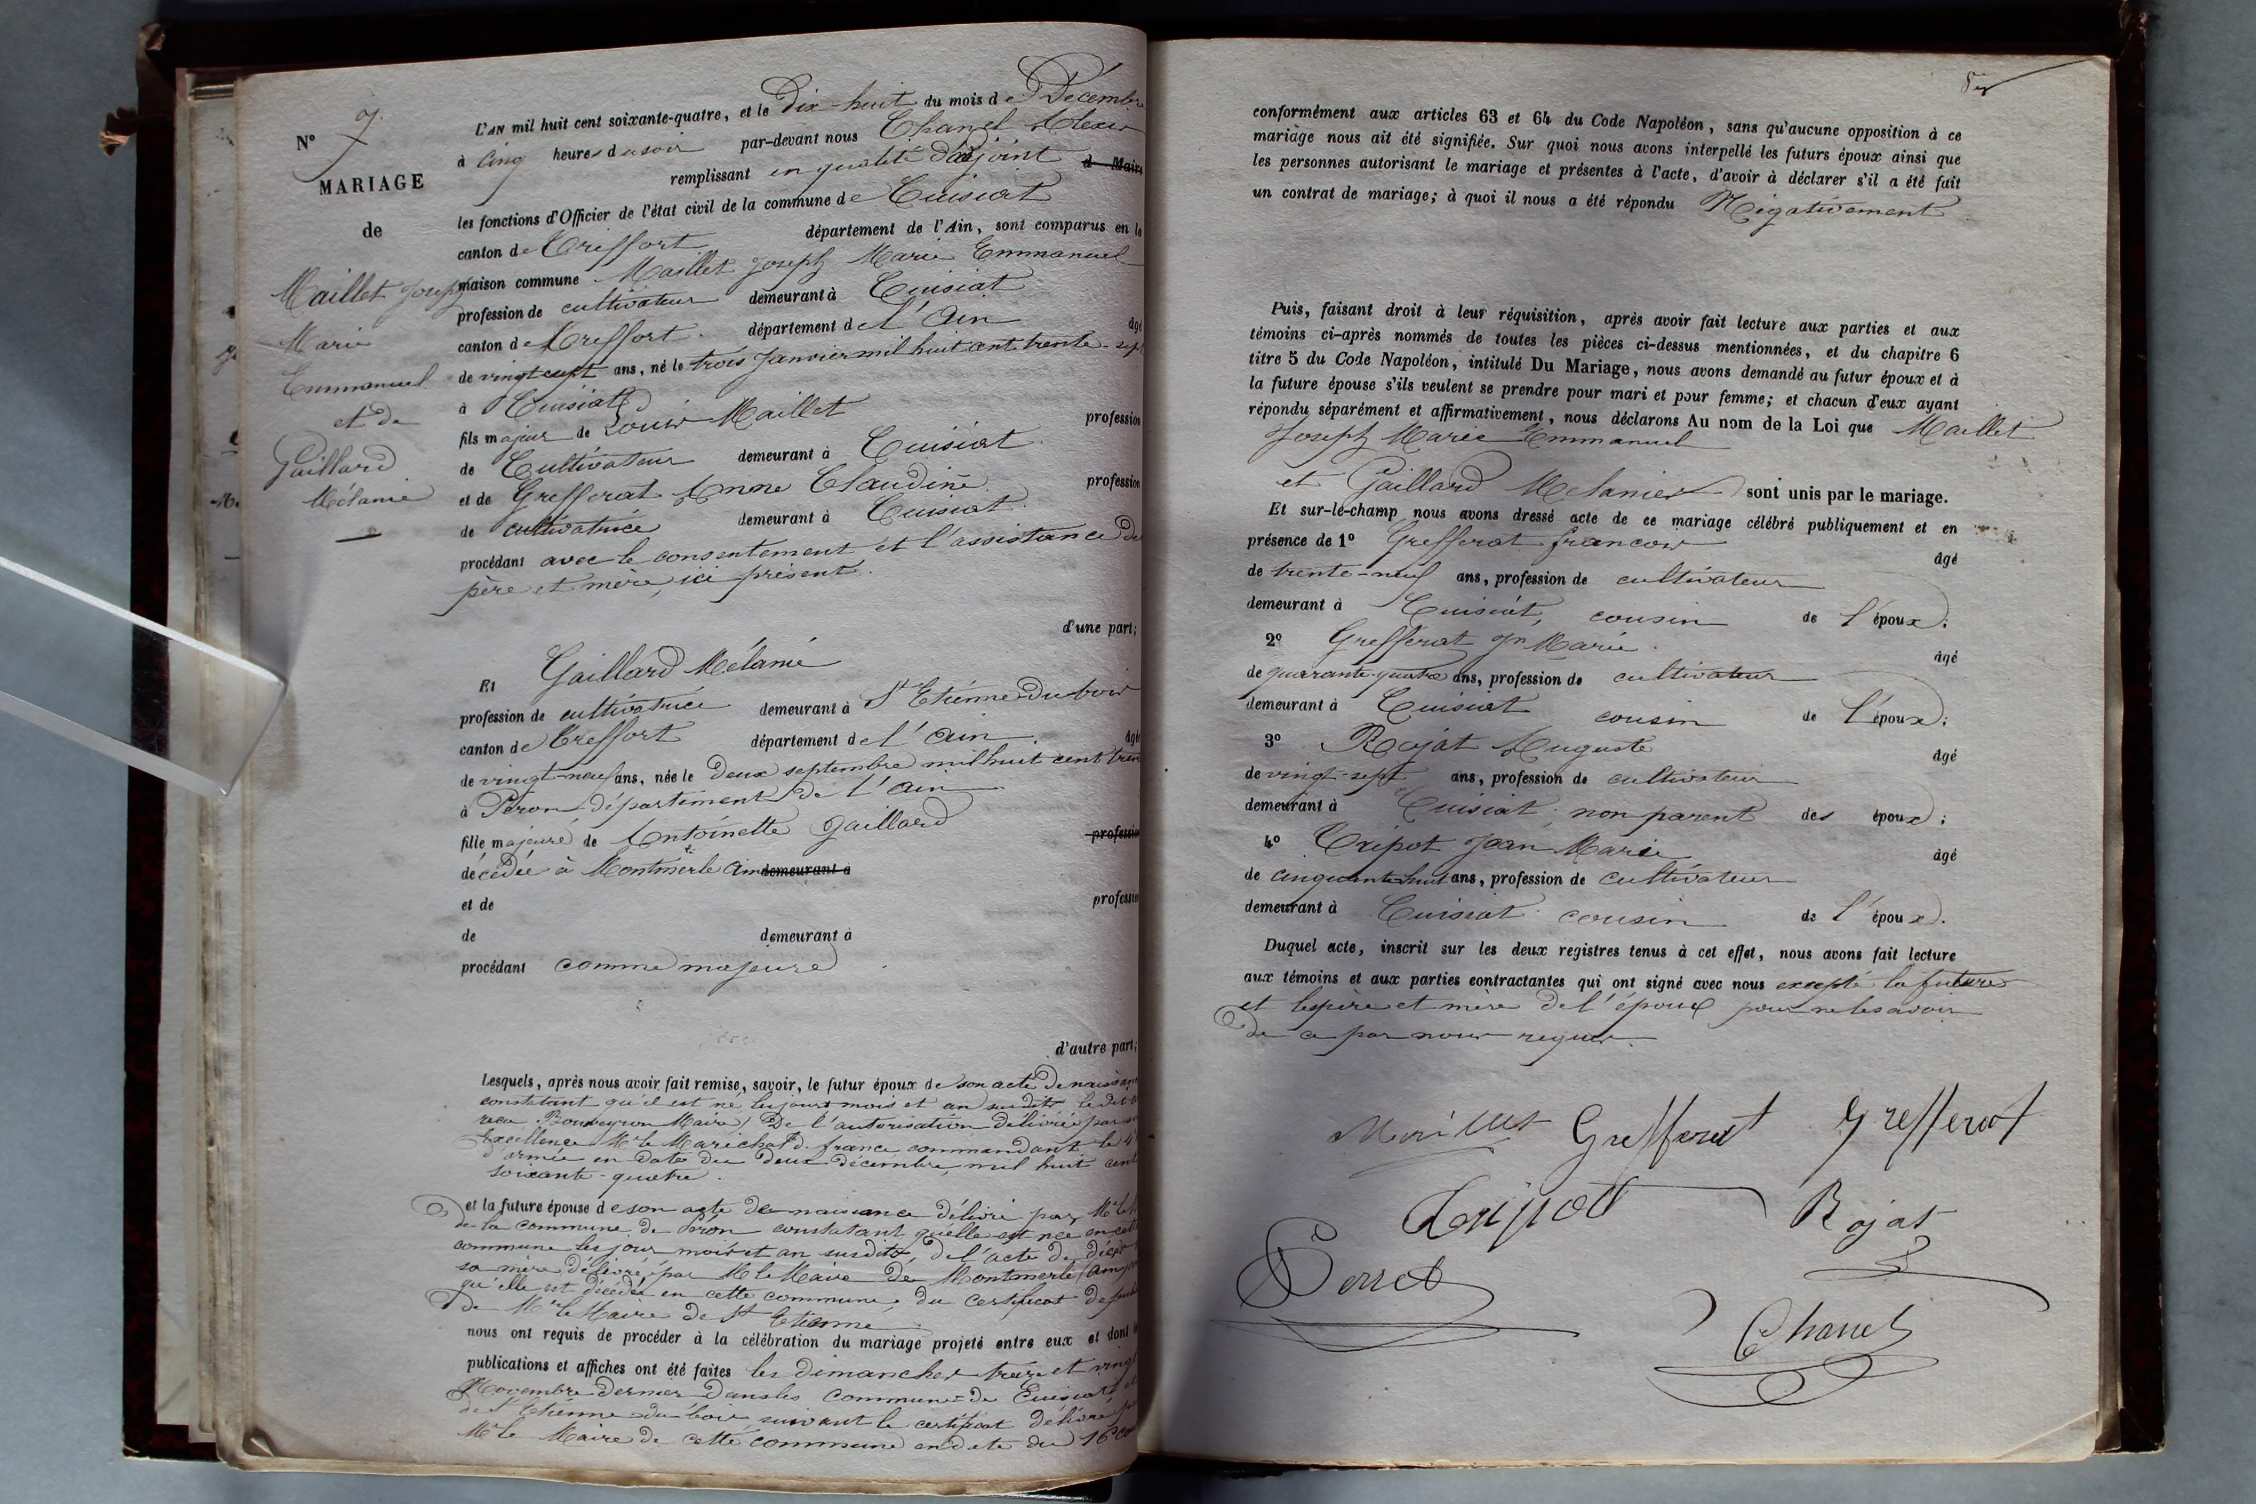 N° 7.
MARIAGE
de
Maillet Joseph
Marie
Emmanuel
et de
Gaillard
Mélanie
L'AN mil huit cent soixante-quatre, et le Dix-huit du mois de Décembre
à cinq heures du soir par-devant nous Chanel Alexis
remplissant en qualité d'adjoint d Maire
les fonctions d'Officier de l'état civil de la commune de Cuisiat
canton de Treffort département de l'Ain, sont comparus en la
maison commune Maillet Joseph Marie Emmanuel
profession de cultivateur demeurant à Cuisiat
canton de Treffort département de l'Ain âgé
de vingt sept ans, né le trois Janvier mil huit cent trente-sept
à Cuisiat
fils majeur de Louis Maillet profession
de Cultivateur demeurant à Cuisiat
et de Grefferat Anne Claudine profession
de cultivatrice demeurant à Cuisiat
procédant avec le consentement et l'assistance de
père et mère, ici présent.
d'une part;
Et Gaillard Mélanie
profession de cultivatrice demeurant à St Etienne du bois
canton de Treffort département de l'Ain. âgé
de vingt-neuf ans, née le Deux septembre mil huit cent tren
à Péron département de l'Ain
fille majeure de Antoinette Gaillard profession
décédée à Montmerle Ain demeurant à
et de profession
de demeurant à
procédant comme majeure
d'autre part;
Lesquels, après nous avoir fait remise, savoir, le futur époux de son acte de naissan
constatant qu'il est né les jours mois et an susdits le dit
reçu Bouveyron Maire, De l'autorisation délivrée par s
Excellence Mr le Maréchal de france commandant le 4e
d'armée en date du deux décembre, mil huit cent
soixante-quatre.
et la future épouse de son acte de naissance délivré par Mr le
de la commune de Péron constatant qu'elle est née en cette
commune les jour mois et an susdits, de l'acte de décès
sa mère délivré par Mr le Maire de Montmerle (ain)
qu'elle est décédée en cette commune, du certificat de
de Mr le Maire de St Etienne
nous ont requis de procéder à la célébration du mariage projeté entre eux et dont
publications et affiches ont été faites les dimanches treize et vingt
Novembre dernier Dans les communes de Cuisiat et
de St Etienne du bois, suivant le certificat délivré
Mr le Maire de cette commune en date du 16
conformément aux articles 63 et 64 du Code Napoléon, sans qu'aucune opposition à ce
mariage nous ait été signifiée. Sur quoi nous avons interpellé les futurs époux ainsi que
les personnes autorisant le mariage et présentes à l'acte, d'avoir à déclarer s'il a été fait
un contrat de mariage; à quoi il nous a été répondu Négativement
Puis, faisant droit à leur réquisition, après avoir fait lecture aux parties et aux
témoins ci-après nommés de toutes les pièces ci-dessus mentionnées, et du chapitre 6
titre 5 du Code Napoléon, intitulé Du Mariage, nous avons demandé au futur époux et à
la future épouse s'ils veulent se prendre pour mari et pour femme; et chacun d'eux ayant
répondu séparément et affirmativement, nous déclarons Au nom de la Loi que Maillet
Joseph Marie Emmanuel
et Gaillard Mélanie sont unis par le mariage.
Et sur-le-champ nous avons dressé acte de ce mariage célébré publiquement et en
présence de 1° Grefferat francois âgé
de trente-neuf ans, profession de cultivateur
demeurant à Cuisiat, cousin de l'époux.
2° Grefferat Jn Marie. âgé
de quarante-quatre ans, profession de cultivateur
demeurant à Cuisiat cousin de l'époux;
3° Rojat Auguste âgé
de vingt-sept ans, profession de cultivateur
demeurant à Cuisiat, non parent des époux;
4° Tripot Jean Marie âgé
de cinquante huit ans, profession de cultivateur
demeurant à Cuisiat cousin de l'époux.
Duquel acte, inscrit sur les deux registres tenus à cet effet, nous avons fait lecture
aux témoins et aux parties contractantes qui ont signé avec nous excepté la future
et les père et mère de l'époux pour ne le savoir
de ce par nous requis.
Grefferat Grefferat
Tripot Rojat
Perret
Chanel